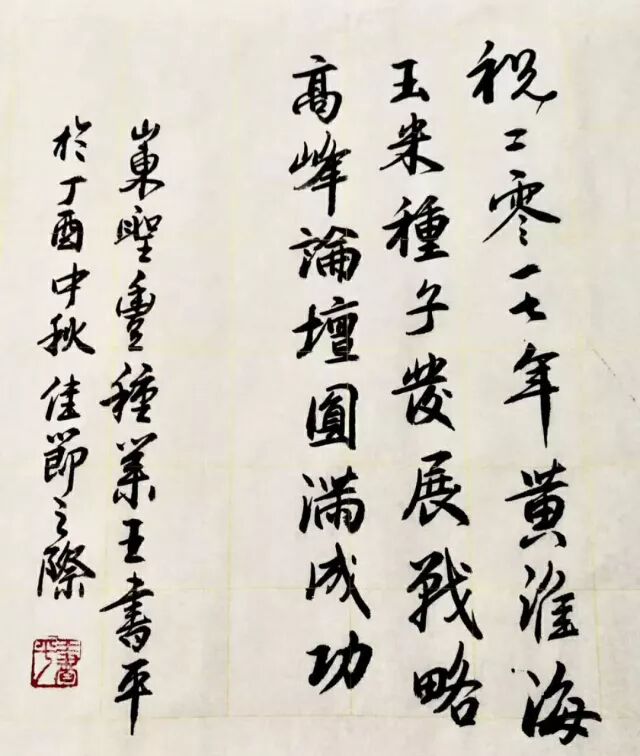 祝二零一七年黄淮海
玉米種子發展戰略
高峰論壇圓滿成功
山東聖豐種業王書平
於丁酉中秋佳節之際